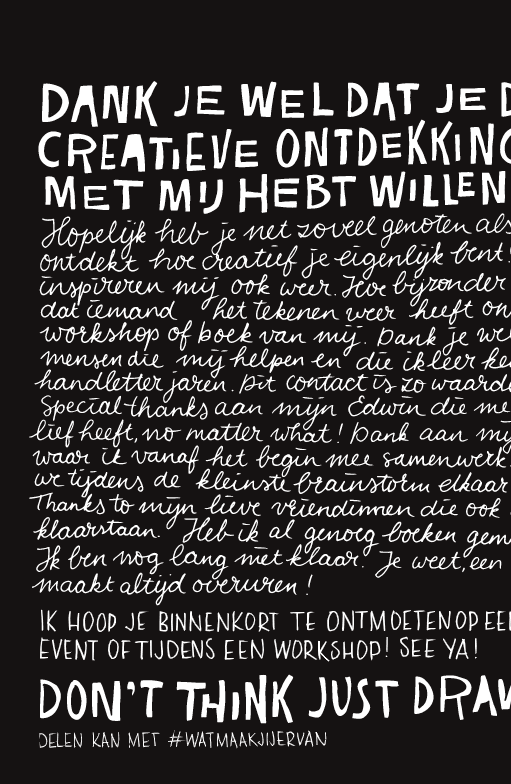 DANK JE WEL DAT JE D
CREATIEVE ONTDEKKING
MET MIJ HEBT WILLEN
Hopelijk heb je net zoveel genoten als
ontdekt hoe creatief je eigenlijk bent!
inspireren mij ook weer. Hoe bijzonder
dat iemand het tekenen weer heeft on
workshop of boek van mij. Dank je we
mensen die mij helpen en die ik leer ke
handletter jaren. Dit contact is zo waarde
Special thanks aan mijn Edwin die me
lief heeft, no matter what! Dank aan mij
waar ik vanaf het begin mee samenwerk.
we tijdens de kleinste brainstorm elkaar
Thanks to mijn lieve vriendinnen die ook
klaarstaan. Heb ik al genoeg boeken gem
Ik ben nog lang niet klaar. Je weet, een
maakt altijd overuren!
IK HOOP JE BINNENKORT TE ONTMOETEN OP EE
EVENT OF TIJDENS EEN WORKSHOP! SEE YA!
DON'T THINK JUST DRAW
DELEN KAN MET #WATMAAKJIJERVAN